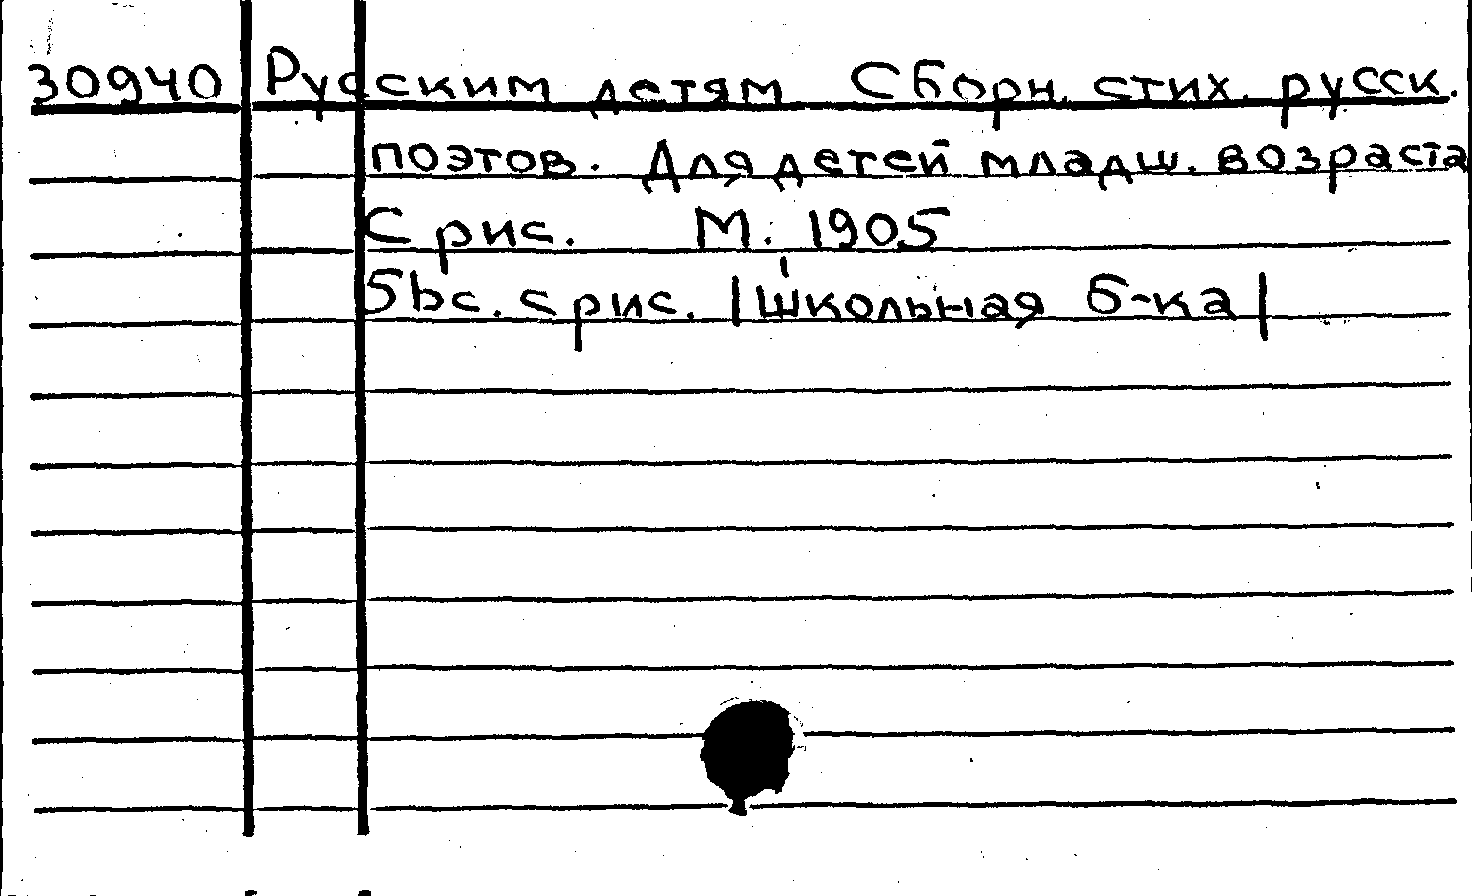 30940 Русским детям Сборн. стих. русск.
поэтов. Для детей младш. возраста
С рис. М. 1905
56с. с рис. |Школьная б-ка|